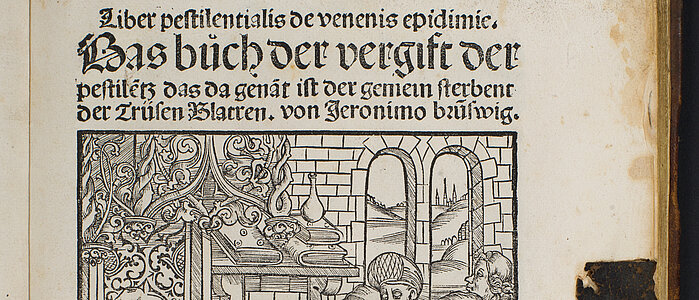 Liber pestilentialis de venenis epidimie.
Das bůch der vergift der
pestilētz das da genāt ist der gemein sterbent
der Trüsen Blatren. von Jeronimo brūswig.